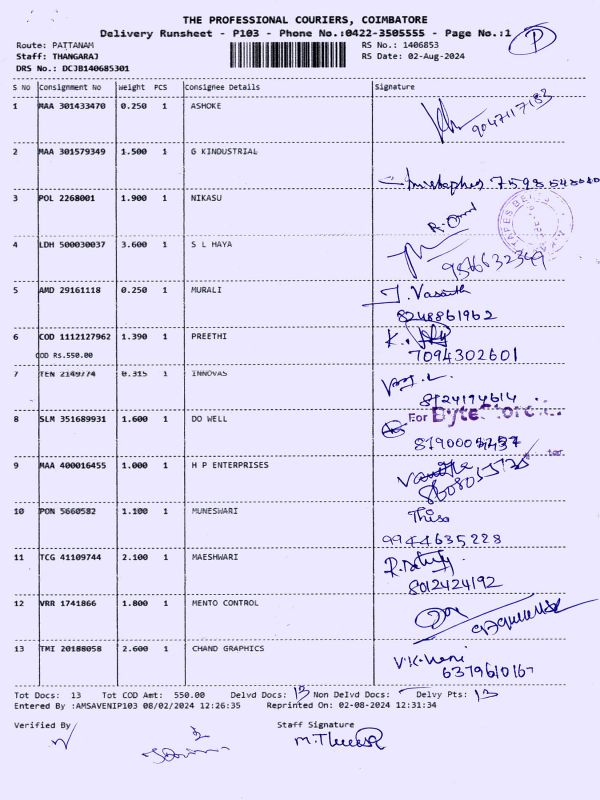 THE PROFESSIONAL COURIERS, COIMBATORE
Delivery Runsheet - P103 - Phone No.:0422-3505555 - Page No.:1
P
Route: PATTANAM RS No.: 1406853
Staff: THANGARAJ RS Date: 02-Aug-2024
DRS No.: DCJB140685301
S No Consignment No Weight PCS Consignee Details Signature
1 MAA 301433470 0.250 1 ASHOKE
9047117183
2 MAA 301579349 1.500 1 G KINDUSTRIAL
3 POL 2268001 1.900 1 NIKASU
4 LDH 500030037 3.600 1 S L HAYA
5 AMD 29161118 0.250 1 MURALI J. Vasanth
8248861962
6 COD 1112127962 1.390 1 PREETHI
COD Rs.550.00 7094302601
7 TEN 2149774 0.315 1 INNOVAS
8124174614
8 SLM 351689931 1.600 1 DO WELL For
9 MAA 400016455 1.000 1 H P ENTERPRISES
10 PON 5660582 1.100 1 MUNESWARI
9944635228
11 TCG 41109744 2.100 1 MAESHWARI
8012424192
12 VRR 1741866 1.800 1 MENTO CONTROL
13 TMI 20188058 2.600 1 CHAND GRAPHICS V.K.Veni
Tot Docs: 13 Tot COD Amt: 550.00 Delvd Docs: 13 Non Delvd Docs: Delvy Pts: 13
Entered By :AMSAVENIP103 08/02/2024 12:26:35 Reprinted On: 02-08-2024 12:31:34
Verified By Staff Signature